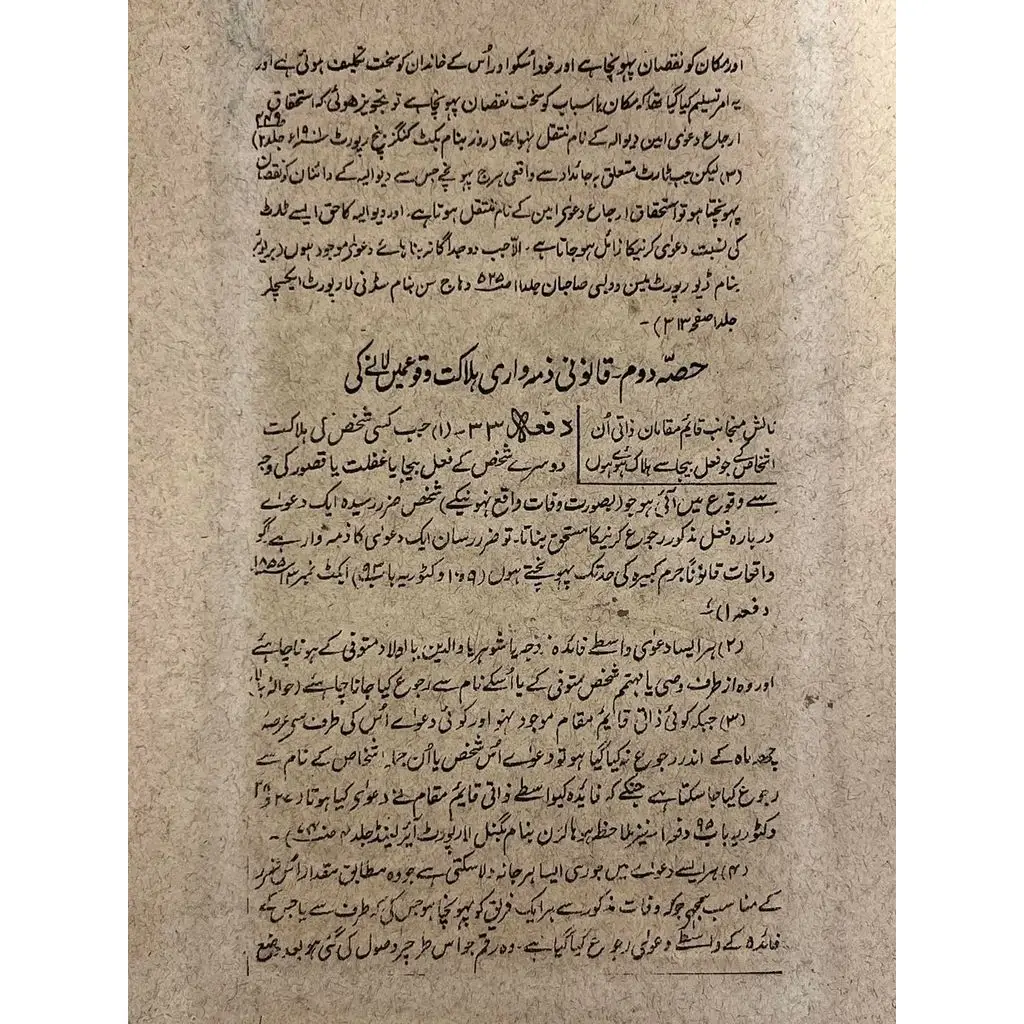 اور مکان کو نقصان پہونچا ہے اور خود اُسکو اور اُس کے خاندان کو سخت تکلیف ہوئی ہے اور
یہ امر تسلیم کیا گیا تھا کہ مکان یا اسباب کو سخت نقصان پہونچا ہے تو تجویز ھوئی کہ استحقاق
ارجاع دعویٰ امین دیوالہ کے نام منتقل نہوا تھا (روز بنام بکٹ کنگز بنچ رپورٹ ۱۹۰۱ء جلد ۲ ۴۴۹)
(۳) لیکن جب ٹارٹ متعلق بہ جائداد سے واقعی ہرج پہونچے جس سے دیوالیہ کے دائنان کو نقصان
پہونچتا ہو تو استحقاق ارجاع دعویٰ امین کے نام منتقل ہوتا ہے۔ اور دیوالیہ کا حق ایسے ٹارٹ
کی نسبت دعویٰ کرنیکا زائل ہو جاتا ہے۔ الّا جب دو جداگانہ بنا ہائے دعویٰ موجود ہوں (
بنام ڈیو رپورٹ مین و ویلسی صاحبان جلد ۱۱ صـ ۵۲۵ و ھاج سن بنام سڈنی لا رپورٹ ایکسچکر
جلد ۱ صفحہ ۳۱۳)۔
حصّہ دوم۔ قانونی ذمہ واری ہلاکت وقوع میں لانے کی
نالش منجانب قایم مقامان ذاتی اُن
اشخاص کے جو فعل بیجا سے ہلاک ہوئے ہوں
دفعہ ۳۳۔ (۱) جب کسی شخص کی ہلاکت
دوسرے شخص کے فعل بیجا یا غفلت یا قصور کی وجہ
سے وقوع میں آئی ہو جو (بصورت وفات واقع نہونیکے) شخص ضرر رسیدہ ایک دعوے
دربارہ فعل مذکور رجوع کرنیکا مستحق بناتا۔ تو ضرر رسان ایک دعویٰ کا ذمہ وار ہے گو
واقعات قانوناً جرم کبیرہ کی حد تک پہونچتے ہوں (۹ و ۱۰ وکٹوریہ باب ۹۳) ایکٹ نمبر ۱۳ ۱۸۵۵
دفعہ ۱)۔
(۲) ہر ایسا دعویٰ واسطے فائدہ زوجہ یا شوہر یا والدین یا اولاد متوفی کے ہونا چاہئے
اور وہ از طرف وصی یا مہتمم شخص متوفی کے یا اُسکے نام سے رجوع کیا جانا چاہئے (حوالہ بالا)
(۳) جبکہ کوئی ذاتی قایم مقام موجود نہو اور کوئی دعوے اُس کی طرف سے عرصہ
چھہ ماہ کے اندر رجوع نہ کیا گیا ہو تو دعوے اُس شخص یا اُن جملہ اشخاص کے نام سے
رجوع کیا جا سکتا ہے جنکے کہ فائدہ کیواسطے ذاتی قایم مقام نے دعویٰ کیا ہوتا (۲۷ و ۲۸
وکٹوریہ باب ۹۵ دفعہ ۱ نیز ملاحظہ ہو ہالرن بنام بگنل لا رپورٹ آئرلینڈ جلد ۴ صـ ۷۴۰)۔
(۴) ہر ایسے دعوے میں جوری ایسا ہرجانہ دلا سکتی ہے جو وہ مطابق مقدار اُس ضرر
کے مناسب سمجھے جو کہ وفات مذکور سے ہر ایک فریق کو پہونچا ہو جس کی کہ طرف سے یا جس کے
فائدہ کے واسطے دعویٰ رجوع کیا گیا ہے۔ وہ رقم جو اس طرح پر وصول کی گئی ہو بعد وضع